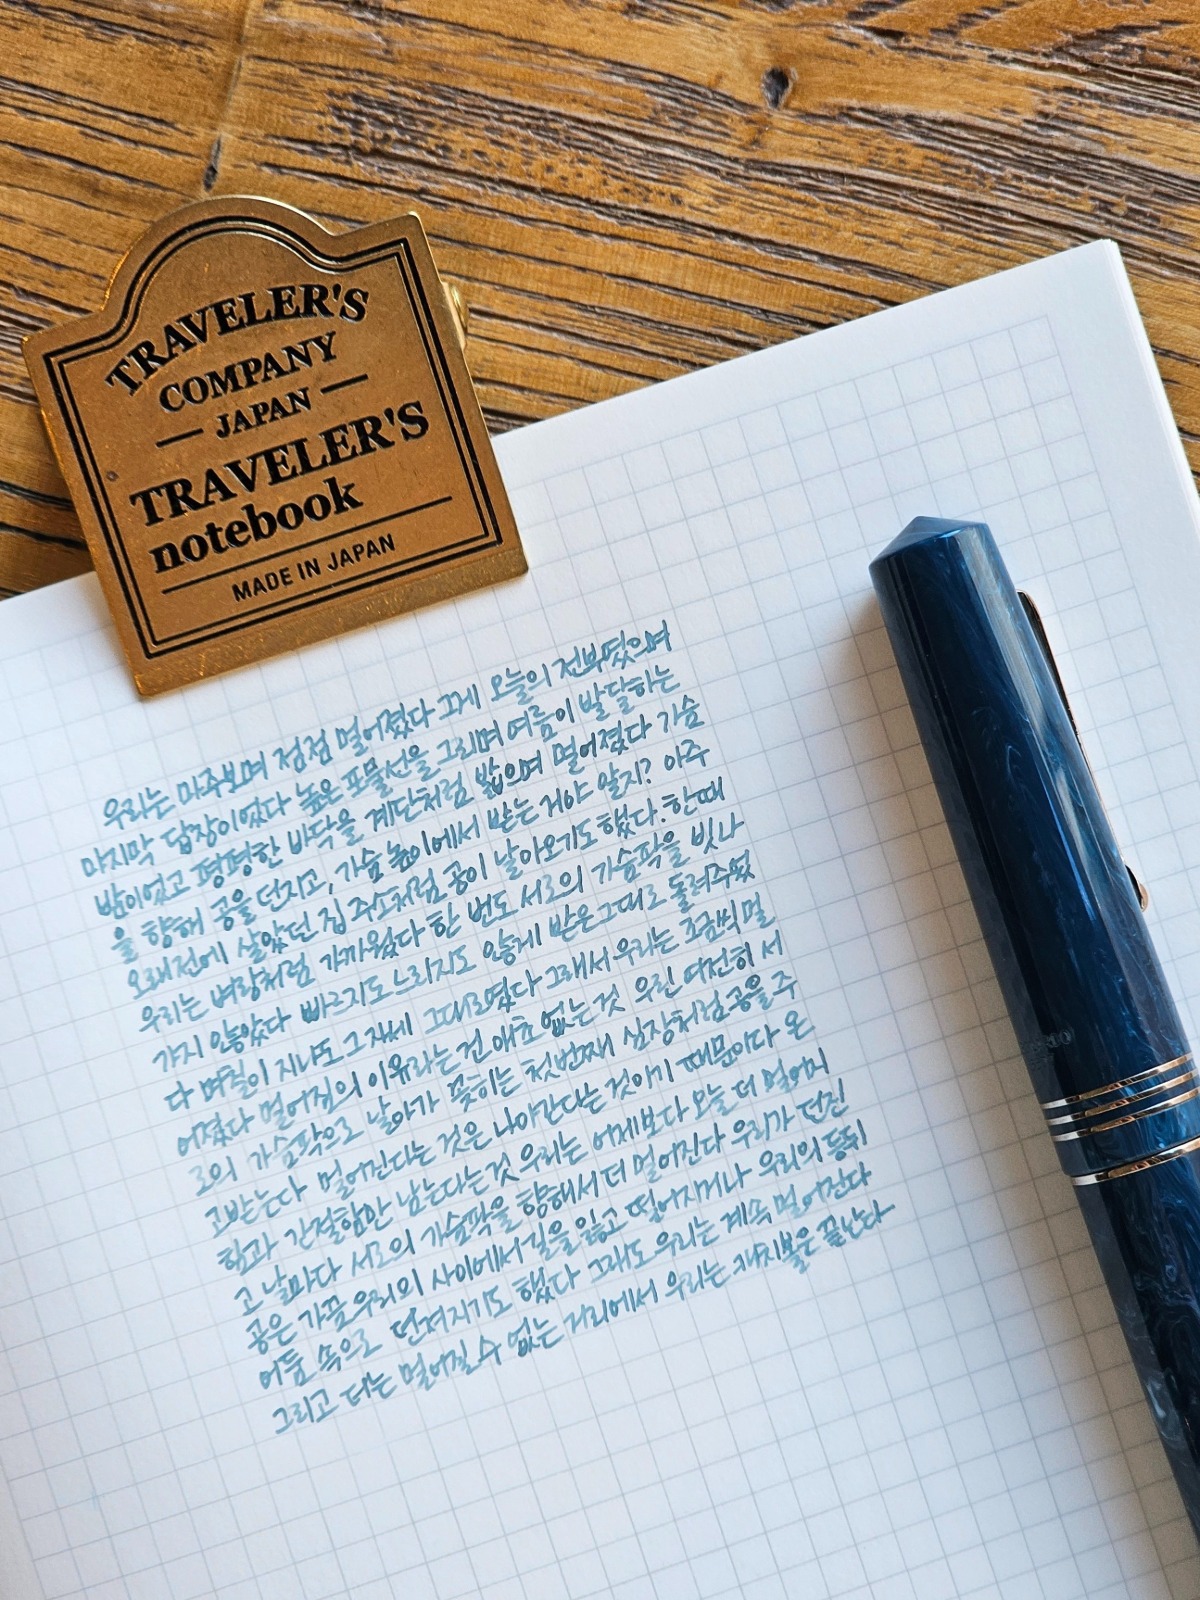 TRAVELER'S
COMPANY
JAPAN
TRAVELER'S
notebook
MADE IN JAPAN
우리는 마주보며 점점 멀어졌다 그게 오늘의 전부였으며
마지막 답장이었다 높은 포물선을 그리며 여름이 발달하는
밤이었고 평평한 바닥을 계단처럼 밟으며 멀어졌다 가슴
을 향해 공을 던지고, 가슴 높이에서 받는 거야 알지? 아주
오래전에 살았던 집 주소처럼 공이 날아오기도 했다. 한때
우리는 벼랑처럼 가까웠다 한 번도 서로의 가슴팍을 빗나
가지 않았다 빠르지도 느리지도 않게 받은 그대로 돌려주었
다 며칠이 지나도 그 자세 그대로였다 그래서 우리는 조금씩 멀
어졌다 멀어짐의 이유라는 건 애초 없는 것 우린 여전히 서
로의 가슴팍으로 날아가 꽂히는 첫번째 심장처럼 공을 주
고받는다 멀어진다는 것은 나아간다는 것이기 때문이다 온
힘과 간절함만 남는다는 것 우리는 어제보다 오늘 더 멀어지
고 날마다 서로의 가슴팍을 향해서 더 멀어진다 우리가 던진
공은 가끔 우리의 사이에서 길을 잃고 떨어지거나 우리의 등뒤
어둠 속으로 던져지기도 했다 그래도 우리는 계속 멀어진다
그리고 더는 멀어질 수 없는 거리에서 우리는 캐치볼은 끝난다